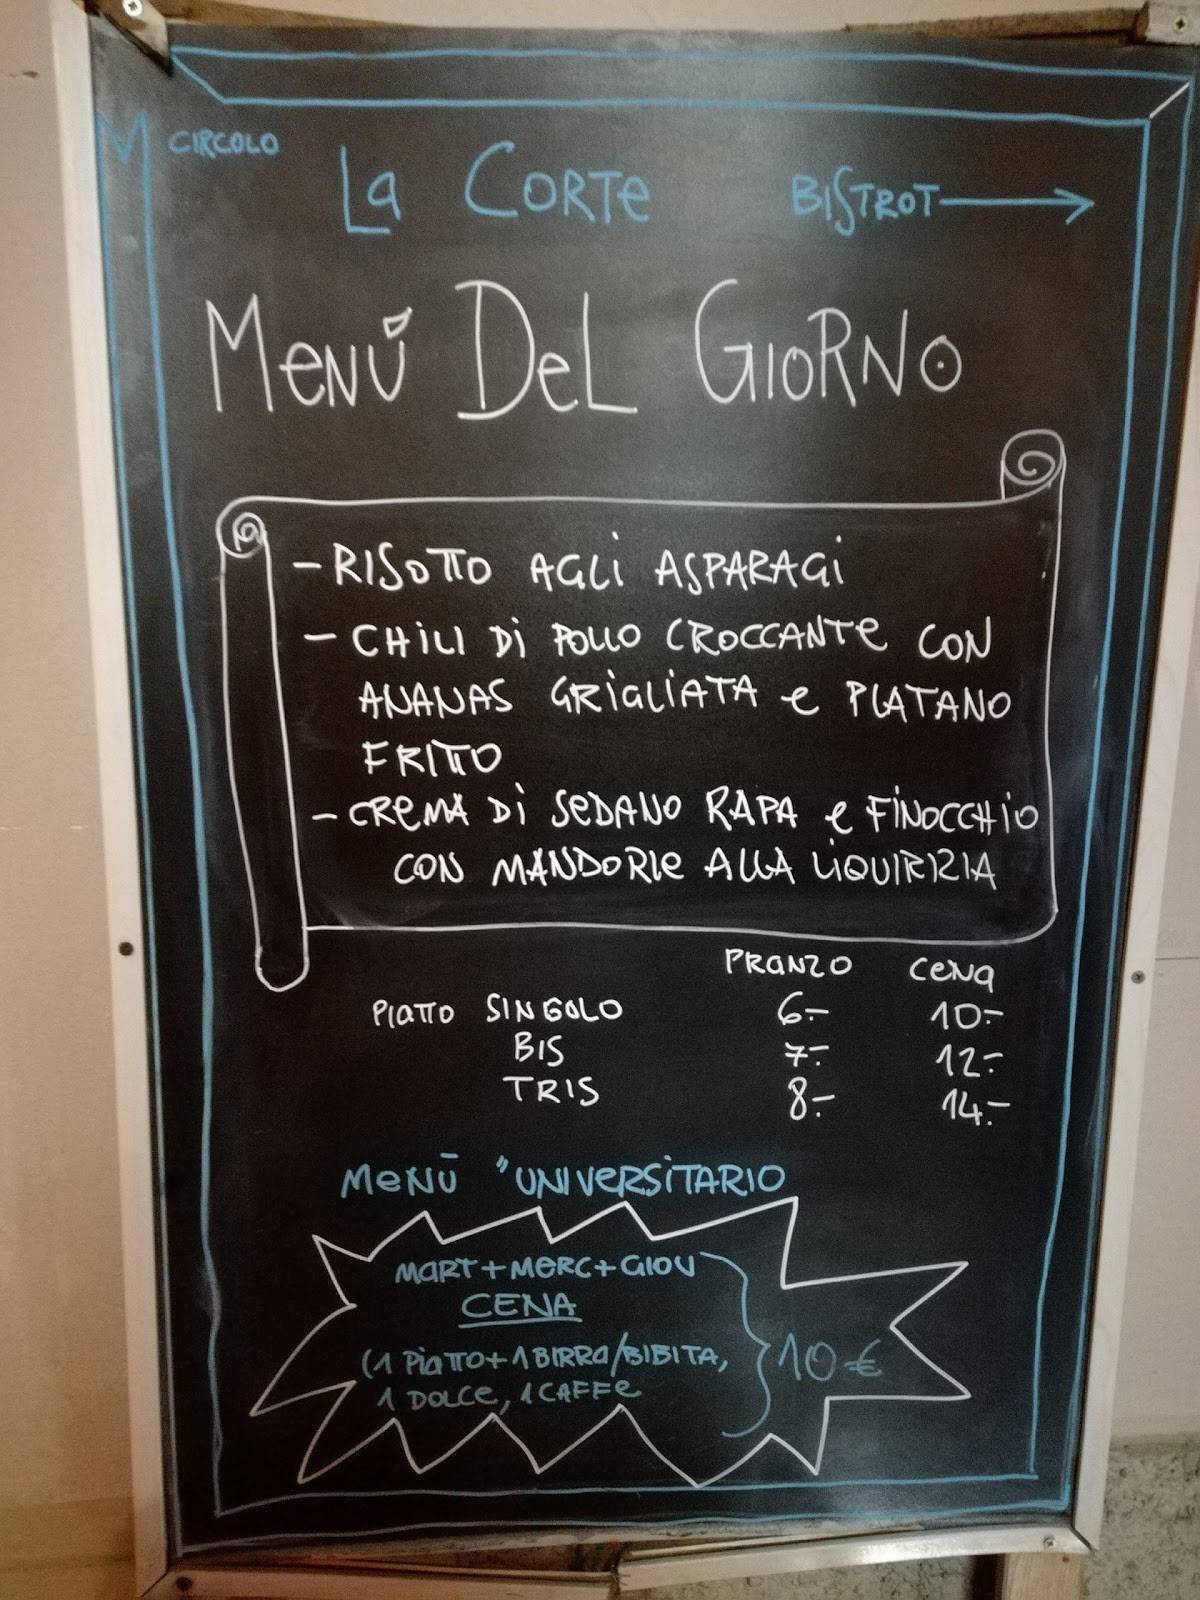 CIRCOLO
La CORTE BISTROT
MENÚ DEL GIORNO
- RISOTTO AGLI ASPARAGI
- CHILI DI POLLO CROCCANTE CON
ANANAS GRIGLIATA e PLATANO
FRITTO
- CREMA DI SEDANO RAPA e FINOCCHIO
CON MANDORLE ALLA LIQUIRIZIA
PRANZO CENA
PIATTO SINGOLO 6.- 10.-
BIS 7.- 12.-
TRIS 8.- 14.-
MENÙ "UNIVERSITARIO
MART+MERC+GIOV
CENA
(1 PIATTO+1 BIRRA/BIBITA,
1 DOLCE, 1 CAFFE
10 €